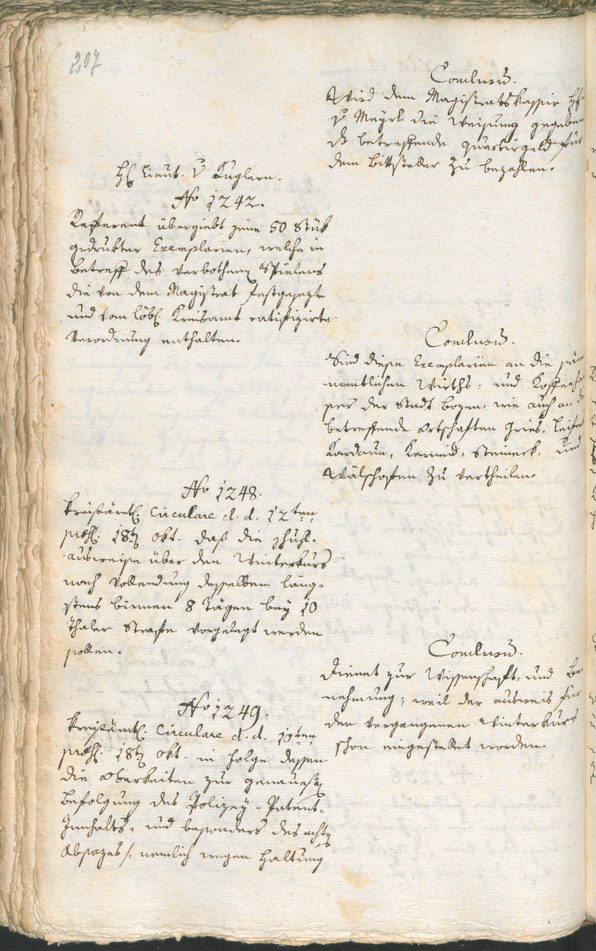 207
Conclusum.
Wird dem Magistratskassier H:
v Mayrl die Weisung gegeben
dß betreffende quartirgeld für
dem Bittsteller zu bezahlen.
H: Lieut. v Kuglern.
No 1242.
Refferent übergiebt jene 50 Stük
gedrukter Exemplarien, welche in
Betreff des Verbothenen Spielens
die von dem Magistrat festgesezte
und von löbl. Kreisamt ratifizirte
Verordnung enthalten.
Conclusum.
Sind diese Exemplarien an die
mentlichen Wirths- und Koffeeh
ser der Stadt Bozen, wie auch an d
betreffende Ortschaften Gries, Leifers
Kardaun, Karneid, Steineck, und
Wälschofen zu vertheilen.
No 1248.
Kreisämtl. Circulare d. d. 12ten
prs. 18t Okt. daß die Schul-
ausweise über den Winterkurs
nach Vollendung desselben läng-
stens binnen 8 Tägen bey 10
Thaler Straffe vorgelegt werden
sollen.
Conclusum.
Dienet zur Wissenschaft, und Be
nehmung; weil der ausweis für
den vergangenen Winterkurs
schon eingestellt worden.
No 1249.
Kreisämtl. Circulare d. d.
prs. 18t Okt. in Folge dessen
die Oberkeiten zur genauesten
Befolgung des Polizey-Patent-
Innhalts, und besonders des acht
Absazes /: nemlich wegen Haltung